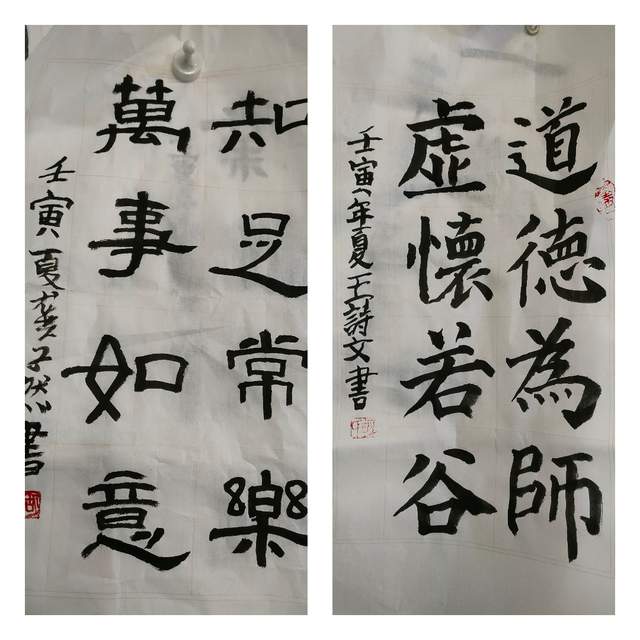 知足常樂
萬事如意
壬寅夏龚子然書
道德為師
虛懷若谷
壬寅年夏王詩文書